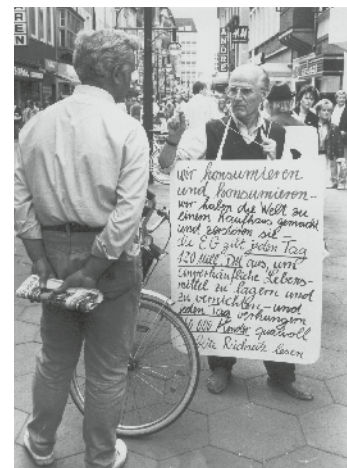 REN
ANDRE
wir konsumieren
und konsumieren –
wir haben die Welt zu
einem Kaufhaus gemacht
und zerstören sie –
die EG gibt jeden Tag
120 Mill. DM aus, um
unverkäufliche Lebens-
mittel zu lagern und
zu vernichten – und
jeden Tag verhungern
000 Kinder qualvoll
bitte Rückseite lesen